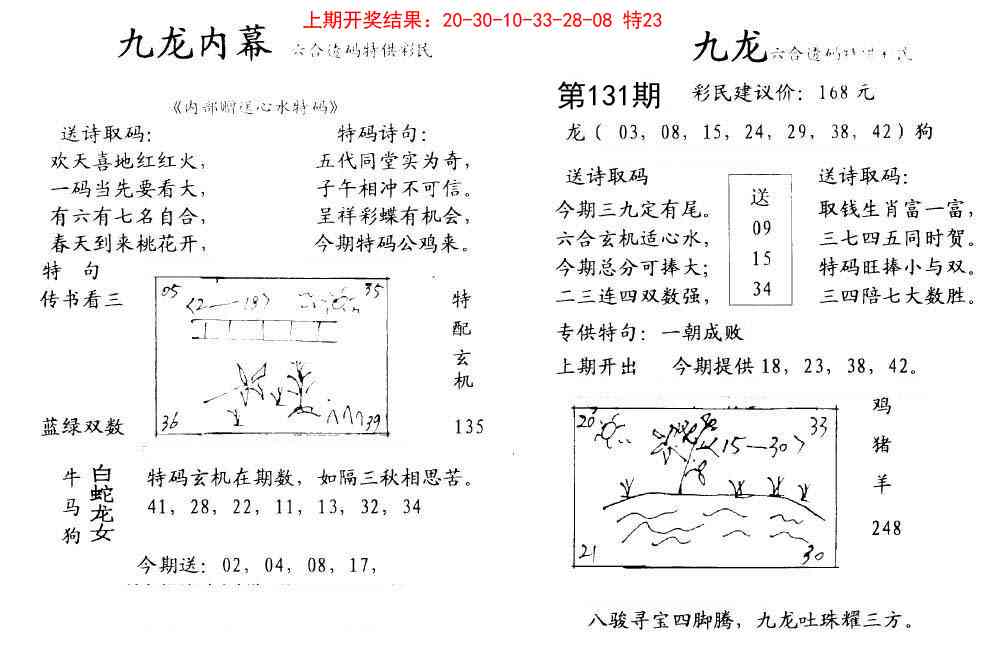 上期开奖结果：20-30-10-33-28-08 特23
九龙内幕 六合透码特供彩民
《内部赠送心水特码》
送诗取码：
欢天喜地红红火，
一码当先要看大，
有六有七名自合，
春天到来桃花开，
特码诗句：
五代同堂实为奇，
子午相冲不可信。
呈祥彩蝶有机会，
今期特码公鸡来。
特 句
传书看三
蓝绿双数
05
35
〈2—18〉
36
39
特配玄机
135
牛马狗
白蛇龙女
特码玄机在期数，如隔三秋相思苦。
41，28，22，11，13，32，34
今期送：02，04，08，17，
九龙 六合透码特供
第131期 彩民建议价：168元
龙（ 03，08，15，24，29，38，42）狗
送诗取码
今期三九定有尾。
六合玄机适心水，
今期总分可捧大；
二三连四双数强，
送
09
15
34
送诗取码：
取钱生肖富一富，
三七四五同时贺。
特码旺捧小与双。
三四陪七大数胜。
专供特句：一朝成败
上期开出 今期提供18，23，38，42。
20
33
〈15—30〉
21
30
鸡
猪
羊
248
八骏寻宝四脚腾，九龙吐珠耀三方。